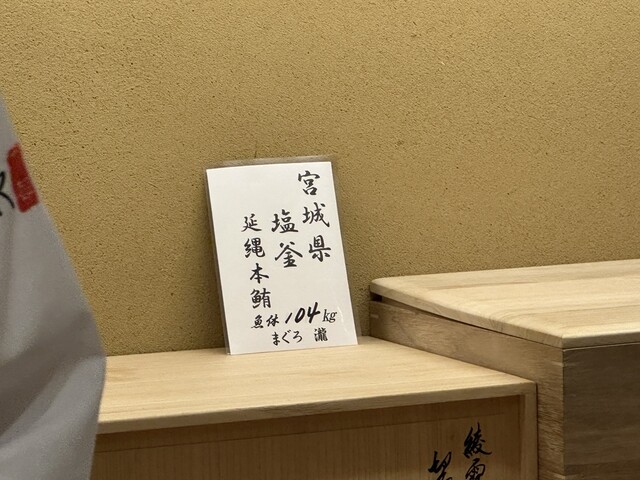 宮城県
塩釜
延縄本鮪
魚体 104 kg
まぐろ 瀧
綾